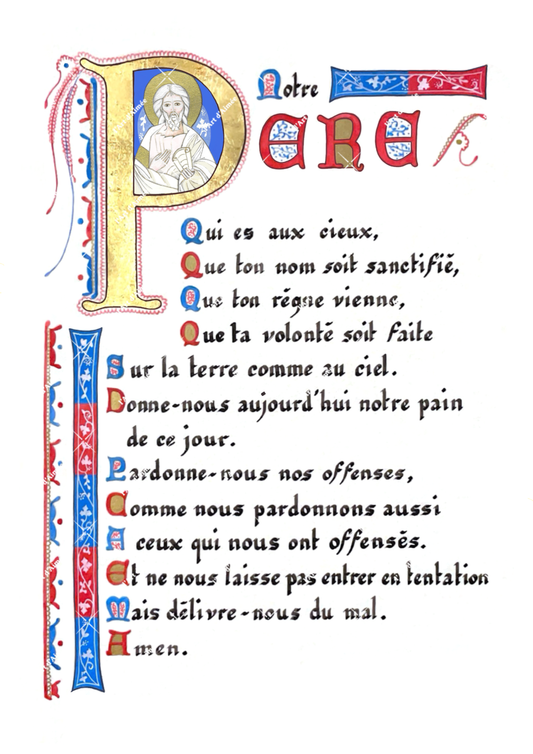 Notre
PERE
Qui es aux cieux,
Que ton nom soit sanctifié,
Que ton régne vienne,
Que ta volonté soit faite
Sur la terre comme au ciel.
Donne-nous aujourd'hui notre pain
de ce jour.
Pardonne-nous nos offenses,
Comme nous pardonnons aussi
A ceux qui nous ont offensés.
Et ne nous laisse pas entrer en tentation
Mais délivre-nous du mal.
Amen.